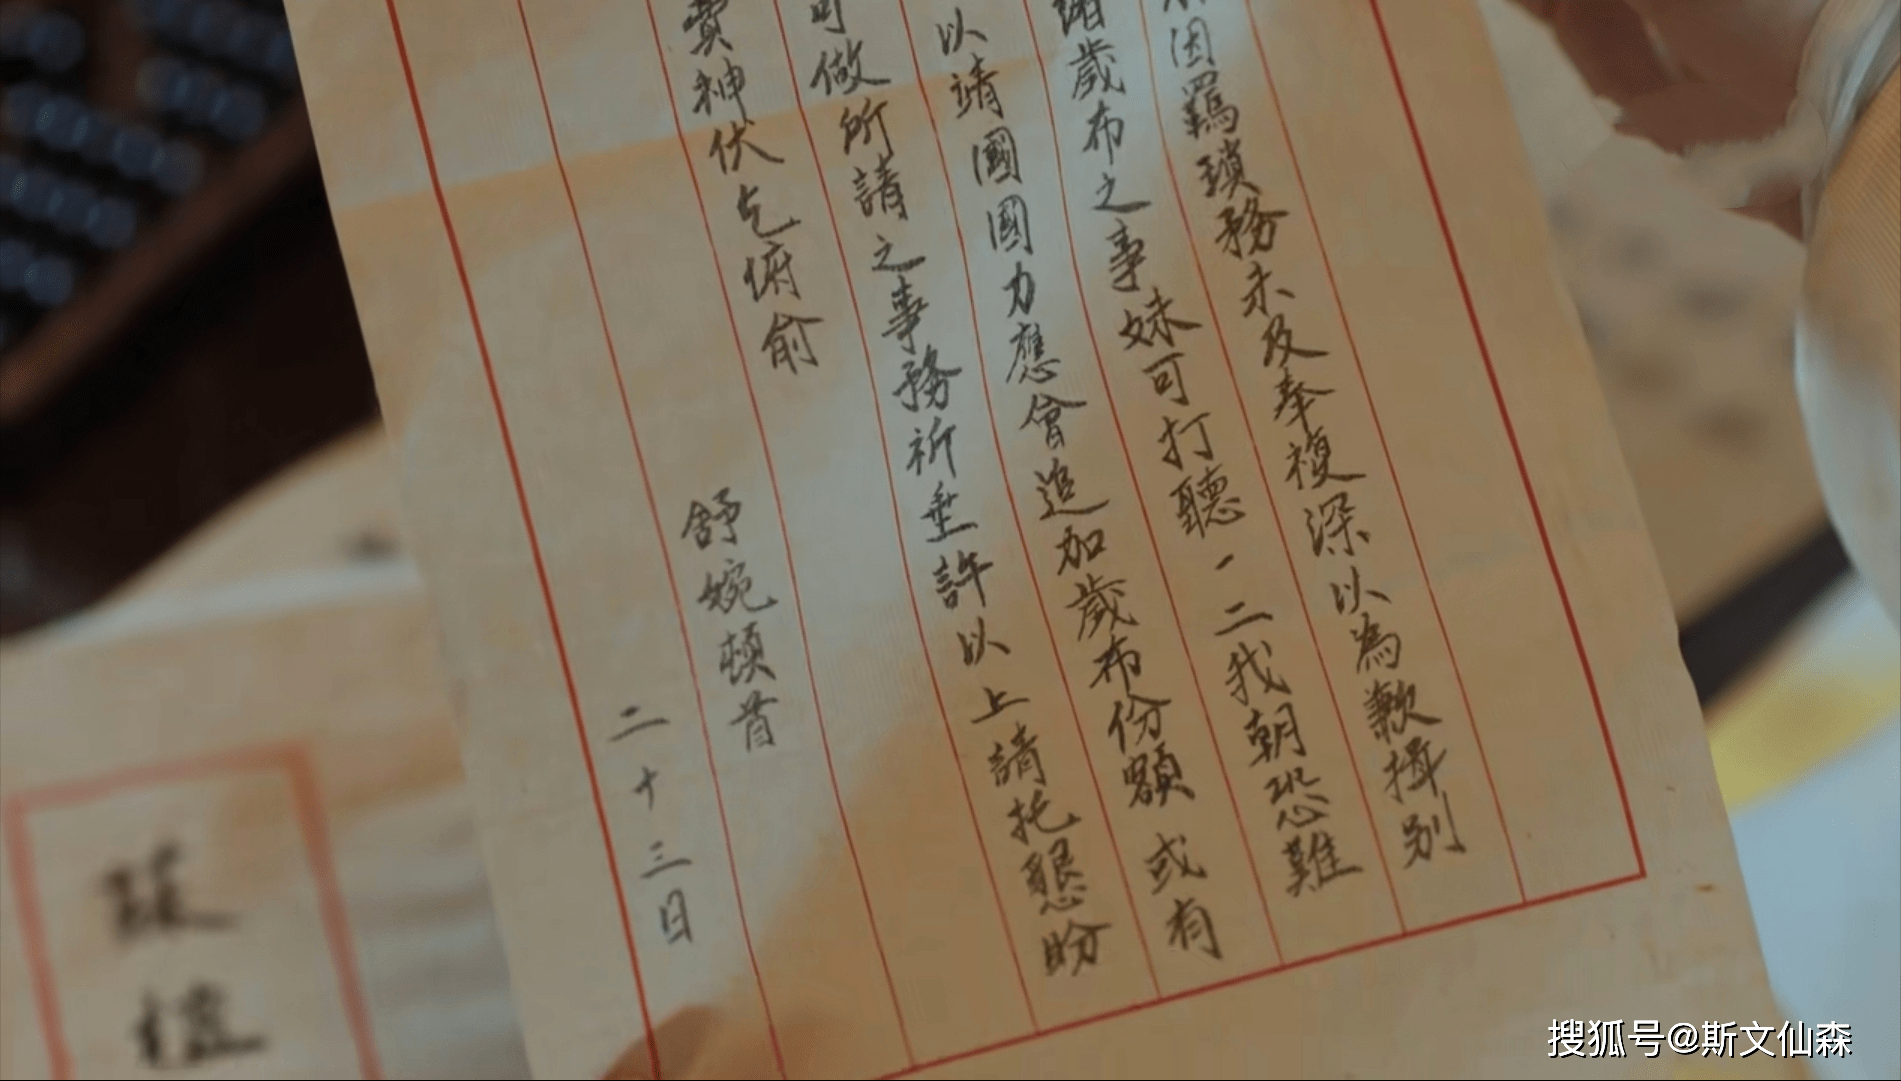 因羈瑣務未及奉複深以為歉揖別
歲布之事妹可打聽一二我朝恐難
以靖國國力應會追加歲布份額或有
可做所請之事務祈垂許以上請托懇盼
費神伏乞俯俞
舒婉頓首
二十三日
搜狐号@斯文仙森